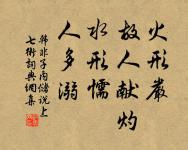 火形嚴
故人獻灼
水形懦
人多溺
韩非子内储说上
七術詞典網集